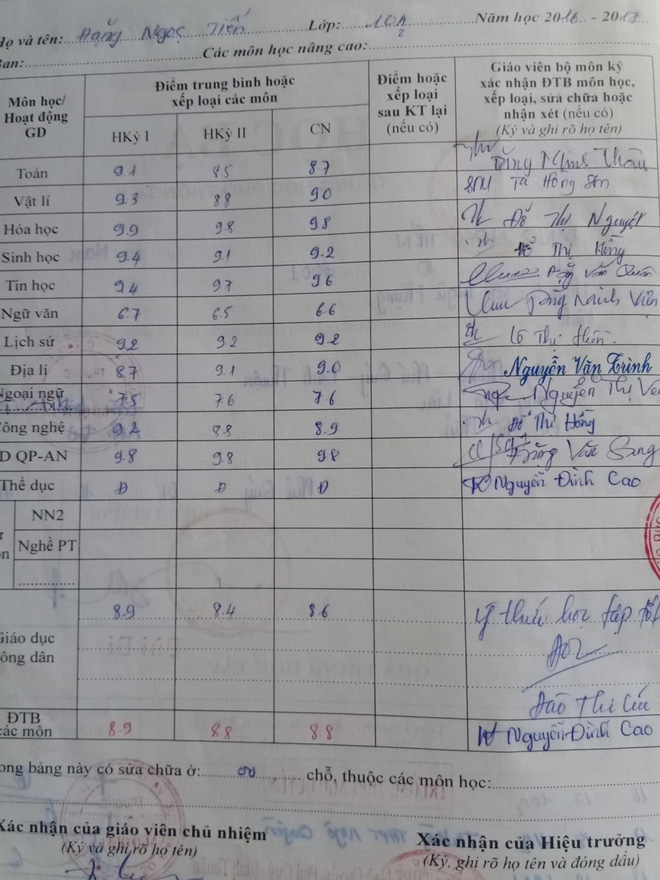 Họ và tên: Đặng Ngọc Tiến Lớp: 10A2 Năm học 2016 - 2017
Ban: Các môn học nâng cao:
Môn học/ Hoạt động GD
Điểm trung bình hoặc xếp loại các môn
HKỳ I HKỳ II CN
Điểm hoặc xếp loại sau KT lại (nếu có)
Giáo viên bộ môn ký xác nhận ĐTB môn học, xếp loại, sửa chữa hoặc nhận xét (nếu có) (Ký và ghi rõ họ tên)
Toán 9.1 8.5 8.7
Vật lí 9.3 8.8 9.0 Tạ Hồng Sơn
Hóa học 9.9 9.8 9.8 Đỗ Thị Nguyệt
Sinh học 9.4 9.1 9.2 Đỗ Thị Hồng
Tin học 9.4 9.7 9.6
Ngữ văn 6.7 6.5 6.6
Lịch sử 9.2 9.2 9.2
Địa lí 8.7 9.1 9.0 Nguyễn Văn Trình
Ngoại ngữ 7.5 7.6 7.6 Nguyễn Thị
Công nghệ 9.2 8.8 8.9 Đỗ Thị Hồng
D QP-AN 9.8 9.8 9.8 Văn Sang
Thể dục Đ Đ Đ Nguyễn Đình Cao
NN2
Nghề PT
Giáo dục công dân 8.9 8.4 8.6 Ý thức học tập tốt
Đào Thị
ĐTB các môn 8.9 8.8 8.8 Nguyễn Đình Cao
ong bảng này có sửa chữa ở: chỗ, thuộc các môn học:
Xác nhận của giáo viên chủ nhiệm Xác nhận của Hiệu trưởng
(Ký và ghi rõ họ tên) (Ký, ghi rõ họ tên và đóng dấu)